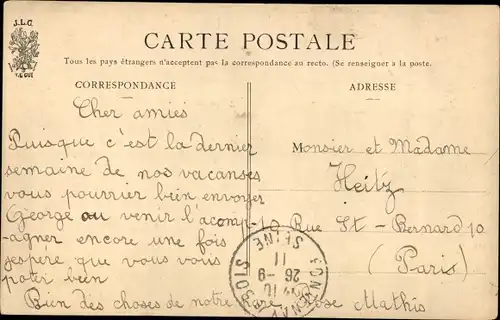 J.L.C.
LE GUI
CARTE POSTALE
Tous les pays étrangers n'acceptent pas la correspondance au recto. (Se renseigner a la poste.
CORRESPONDANCE
ADRESSE
Cher amies
Puisque c'est la dernier
semaine de nos vacanses
vous pourrier bein envoyer
George au venir l'acomp-
agner encore une fois
jespere que vous vous
poter bein
Bien des choses de notre Rose Mathis
Monsier et Madame
Heitz
10 Rue St-Bernard 10
(Paris)
SEINE
11
26-9
BOIS